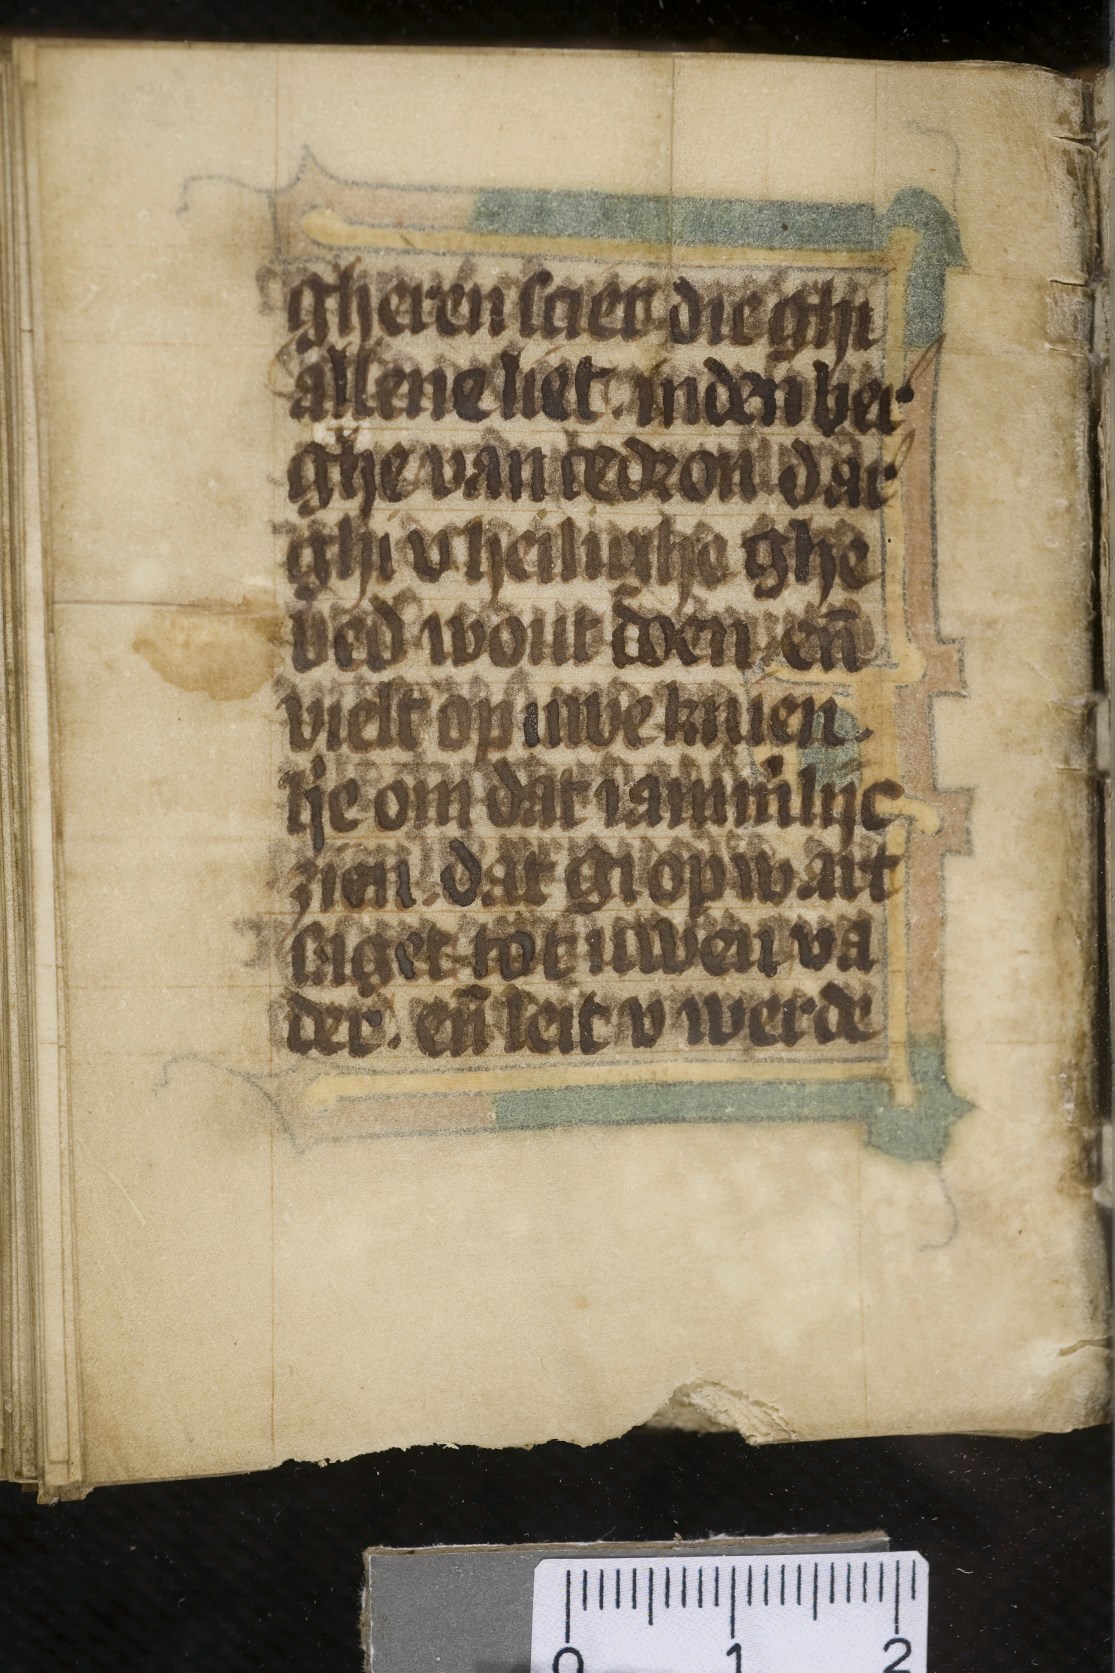 gheren sciet die ghi
allene liet . in den ber
ghe van cedron dat
ghi v heilighe ghe
bed wout doen en̄
vielt op uwe knien .
he om dat iam̄lijc
zien . dat gi opwart
saget tot uwen va
der . en̄ leit v werde
0 1 2